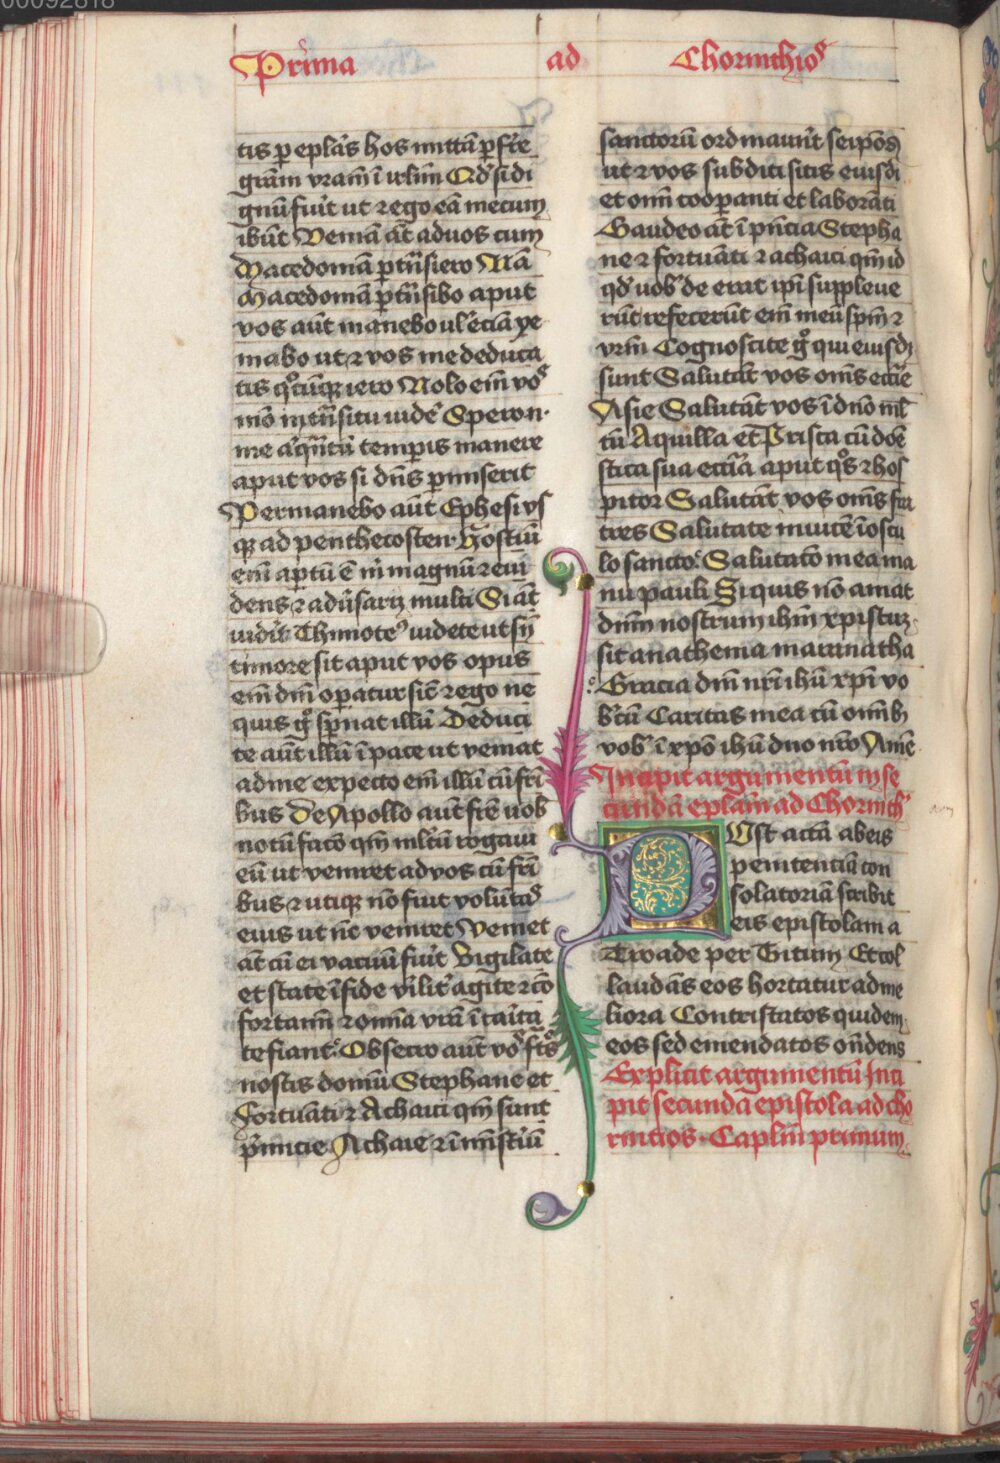 00092818
Prima ad Chorinthios
tis p eplas hos mittā pferre
grām vrām ī irlm Qd si di
gnū fuīt ut ⁊ ego eā mecum
ibūt Veniā āt ad uos cum
Macedoniā ptrāsiero Nā
Macedoniā ptrāsibo aput
vos aūt manebo ul eciā ye
mabo ut ⁊ vos me deduca
tis qocūqꝫ iero Nolo em̄ vos
mō in trāsitu uidē Spero n
me aliqntū temporis manere
aput vos si dn̄s pmiserit
Permanebo aūt Ephesi vs
qꝫ ad penthecosten Hostiū
em̄ aptū ē m̄ magnū ⁊ evi
dens ⁊ aduersarij multi Si āt
uenit Thimoteꝰ uidete ut sn̄
timore sit aput vos opus
em̄ dn̄i opatur sic̄ ⁊ ego ne
quis go spnat illū Deduci
te aūt illū ī pace ut veniat
ad me expecto em̄ illū cū frī
bus De Apollo aūt fr̄e uob
notū facio qm̄ mltū rogaui
eū ut veniret ad vos cū frī
bus ⁊ utiqꝫ nō fuit volūtas
eius ut nc̄ veniret Veniet
āt cū ei vacuū fuīt Vigilate
et state ī fide vilit̄ agite ⁊ cō
fortamī ⁊ omīa vrā ī caīta
te fiant Obsecro aūt vos fr̄s
nostis domū Stephane et
Fortunāti ⁊ Achaici qm̄ sunt
pmicie Achaie ⁊ ī mīstiū
sanctorū ordinaueūt seipos
ut ⁊ vos subditi sitis euisdi
et omī coopanti et laborāti
Gaudeo āt ī pn̄cia Stepha
ne ⁊ fortunāti ⁊ achaici qm̄ id
qd̄ uob deerat ipi suppleue
rūt refecerūt em̄ meū spm̄ ⁊
vrm̄ Cognoscite go qui euisdi
sunt Salutāt vos om̄s eccie
Asie Salutāt vos ī dn̄o ml
tū Aquilla et Prisca cū doē
stica sua eccīa aput qos ⁊ hos
pitor Salutāt vos om̄s fra
tres Salutate inuicē ī oscu
lo sancto Salutatō mea ma
nu pauli Si quis nō amat
dnm̄ nostrum ihm̄ xpistuꝫ
sit anathema maranatha
Gracia dni nri ihū xpi vo
bcū Caritas mea cū omīb
vob ī xpo ihū dno nr̄o Amē
Incipit argumentū in se
cundā eplam̄ ad Chorinth
Post actā ab eis
penitentiā con
solatoriā scribit
eis epistolam a
Troade per Titum Et col
laudās eos hortatur ad me
liora Contristatos quidem
eos sed emendatos on̄dens
Explicit argumentū Inci
pit secunda epistola ad cho
rintios Caplm̄ primum